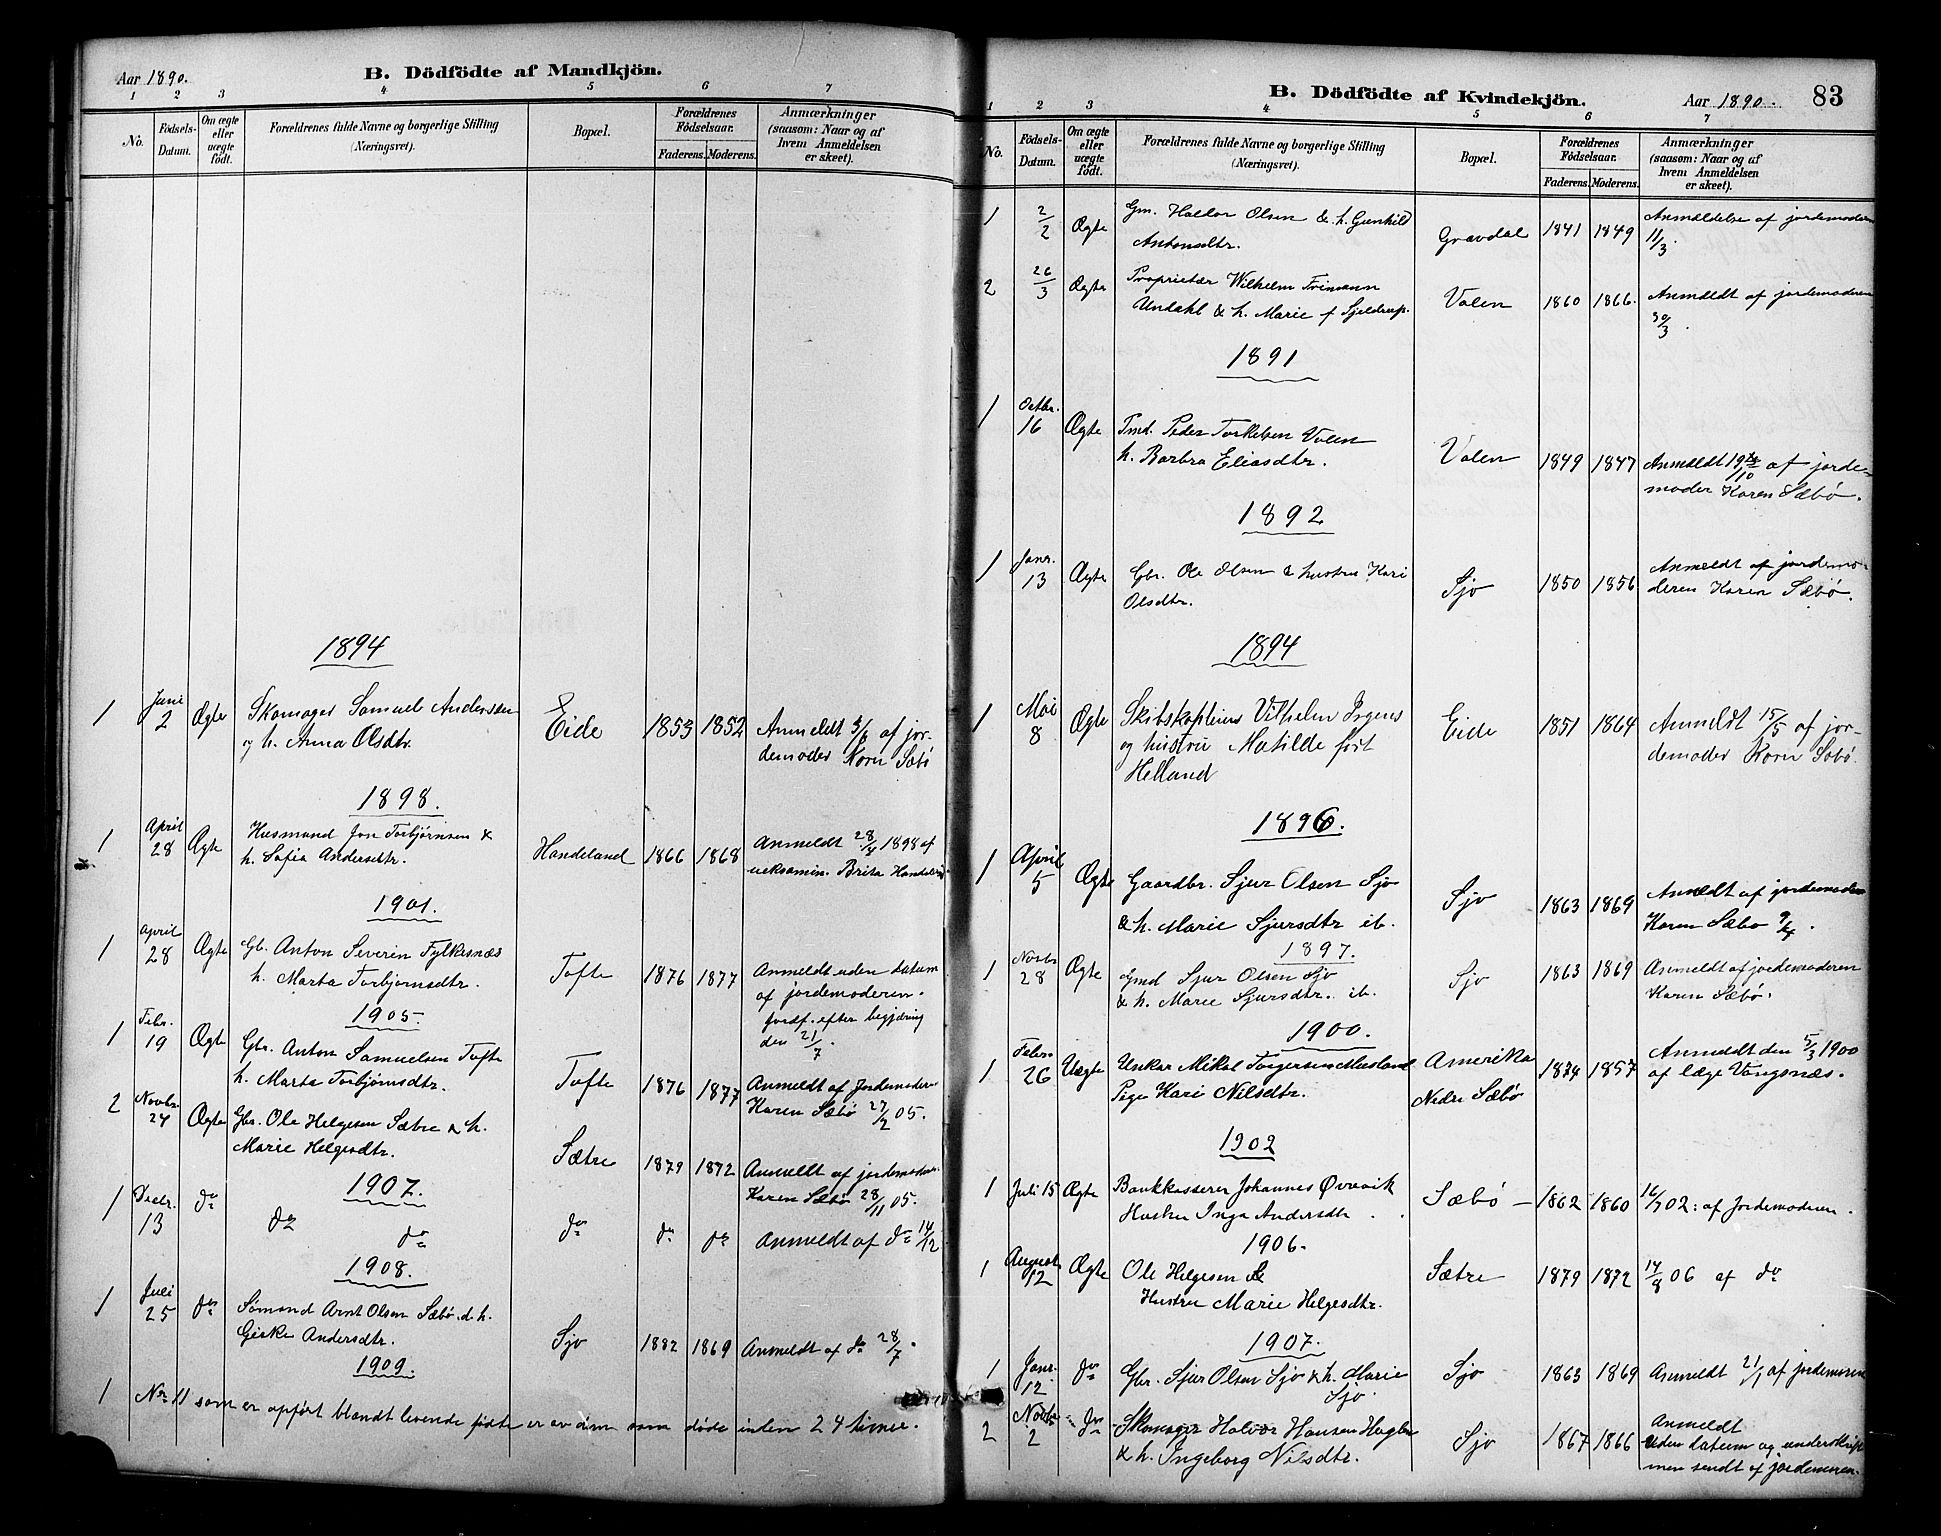 Aar 1890.
B. Dödfödte af Mandkjön.
1 2 3 4 5 6 7
No.
Födsels-Datum.
Om ægte eller uægte födt.
Forældrenes fulde Navne og borgerlige Stilling
(Næringsvei).
Bopæl.
Forældrenes Födselsaar.
Faderens. Moderens.
Anmærkninger
(saasom: Naar og af
hvem Anmeldelsen
er skeet).
1894
1 Juni 2 Ægte Skomager Samuel Andersen
og h. Anna Olsdtr. Eide 1853 1852 Anmeldt 5/6 af jor-
demoder Karen Sæbö
1898.
1 April 28 Ægte Husmand Jon Torbjörnsen &
h. Sofia Andersdtr. Handeland 1866 1868 Anmeldt 28/4 1898 af
ueksamin. Brita Handeland
1901.
1 April 28 Ægte Gb. Anton Severin Fylkesnæs
h. Marta Torbjörnsdtr. Tofte 1876 1877 Anmeldt uden datum
af jordemoderen.
Jordf. efter begjæring
den 21/7.
1905.
1 Febr. 19 Ægte Gbr. Anton Samuelsen Tofte
h. Marta Torbjörnsdtr. Tofte 1876 1877 Anmeldt af Jordemoderen
Karen Sæbö 27/2 05.
2 Novbr. 24 Ægte Gbr. Ole Helgesen Sætre & h.
Marie Helgesdtr. Sætre 1879 1872 Anmeldt af jordemoder
Karen Sæbö 28/11 05.
1907.
1 Decbr. 13 do do do do do do Anmeldt af do 14/12
1908.
1 Juli 25 do Sömand Arnt Olsen Sæbö & h.
Giske Andersdtr. Sjo 1882 1869 Anmeldt af do 28/7.
1909.
1 No 11 som er opfört blandt levende födte er av dem som döde inden 24 timer.
B. Dödfödte af Kvindekjön.
Aar 1890. 83
1 2 3 4 5 6 7
No.
Födsels-Datum.
Om ægte eller uægte födt.
Forældrenes fulde Navne og borgerlige Stilling
(Næringsvei).
Bopæl.
Forældrenes Födselsaar.
Faderens. Moderens.
Anmærkninger
(saasom: Naar og af
hvem Anmeldelsen
er skeet).
1 2/2 Ægte Gm. Haldor Olsen & h. Gunhild
Antonsdtr. Gravdal 1841 1849 Anmeldelse af jordemoderen
11/3.
2 26/3 Ægte Proprietær Wilhelm Frimann
Undahl & h. Marie f Sjeldrup. Valen 1860 1866. Anmeldt af jordemoderen
30/3.
1891
1 Octbr. 16 Ægte Pmd. Peder Torkelsen Valen
h. Barbra Eliasdtr. Valen 1849 1847 Anmeldt 19/10 af jorde-
moder Karen Sæbö.
1892
1 Janr. 13 Ægte Gbr. Ole Olsen & hustru Kari
Olsdtr. Sjo 1850 1856 Anmeldt af jordemo-
deren Karen Sæbö.
1894
1 Mai 8 Ægte Skibskaptein Vilhelm Irgens
og hustru Matilde född
Helland Eide 1851 1864 Anmeldt 15/5 af jor-
demoder Karen Sæbö.
1896.
1 April 5 Ægte Gaardbr. Sjur Olsen Sjo
& h. Marie Sjursdtr ib. Sjo 1863 1869 Anmeldt af jordemoder
Karen Sæbø 9/4.
1897.
1 Novbr 28 Ægte Gmd Sjur Olsen Sjo
& h. Marie Sjursdtr. ib. Sjo 1863 1869 Anmeldt af jordemoderen
Karen Sæbö.
1900.
1 Febr. 26 Uægte Unkar Mikal Torgersen Musland
Pige Kari Nilsdtr. Amerika
Nedre Sæbö 1874 1857 Anmeldt den 5/3 1900
af læge Vangsnæs.
1902
1 Juli 15 Ægte Bankkasserer Johannes Øvrevik
Hustru Inga Andersdtr. Sæbö – 1862 1860 16/7 02: af Jordemoderen.
1906.
1 August 12 Ægte Ole Helgesen &
Hustru Marie Helgesdtr. Sætre 1879 1872 14/8 06 af do
1907.
1 Janr. 12 do Gbr. Sjur Olsen Sjo & h. Marie
Sjo. Sjo 1863 1869 Anmeldt 21/1 af jordemoren
2 Novbr. 2 do Skomager Halvor Hansen
& h. Ingeborg Nilsdtr. Sjo 1867 1866 Anmeldt
uden datum og underskrift
men sendt af jordemoren.